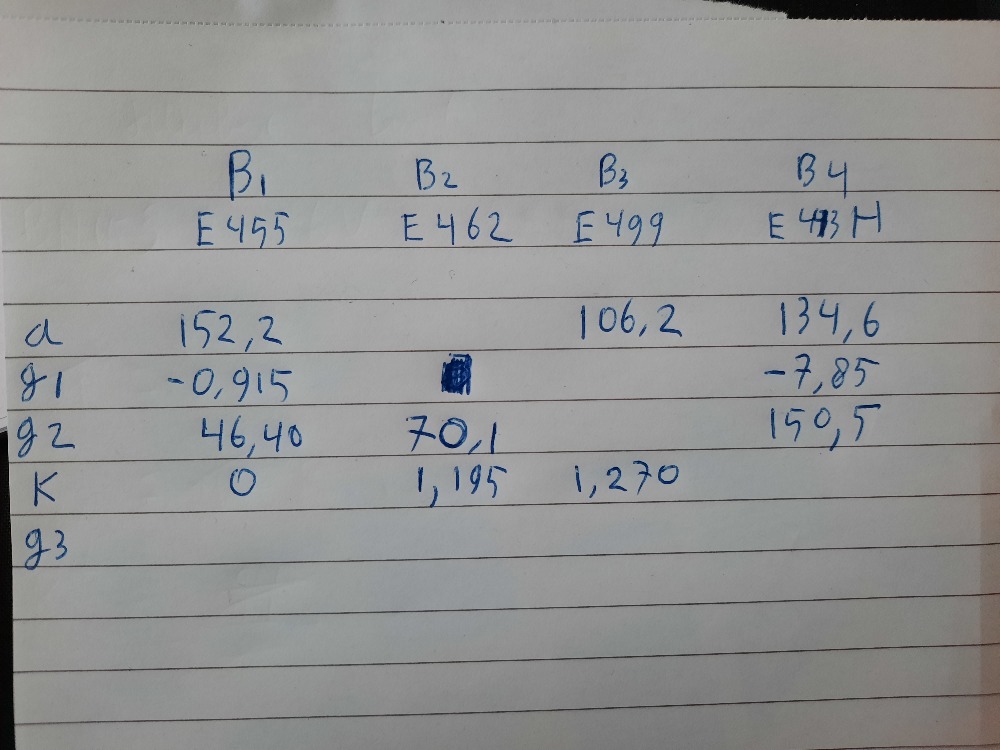 B1 B2 B3 B4
E455 E462 E499
d 152,2 106,2 134,6
g1 -0,915 -7,85
g2 46,40 70,1 150,5
K 0 1,195 1,270
g3